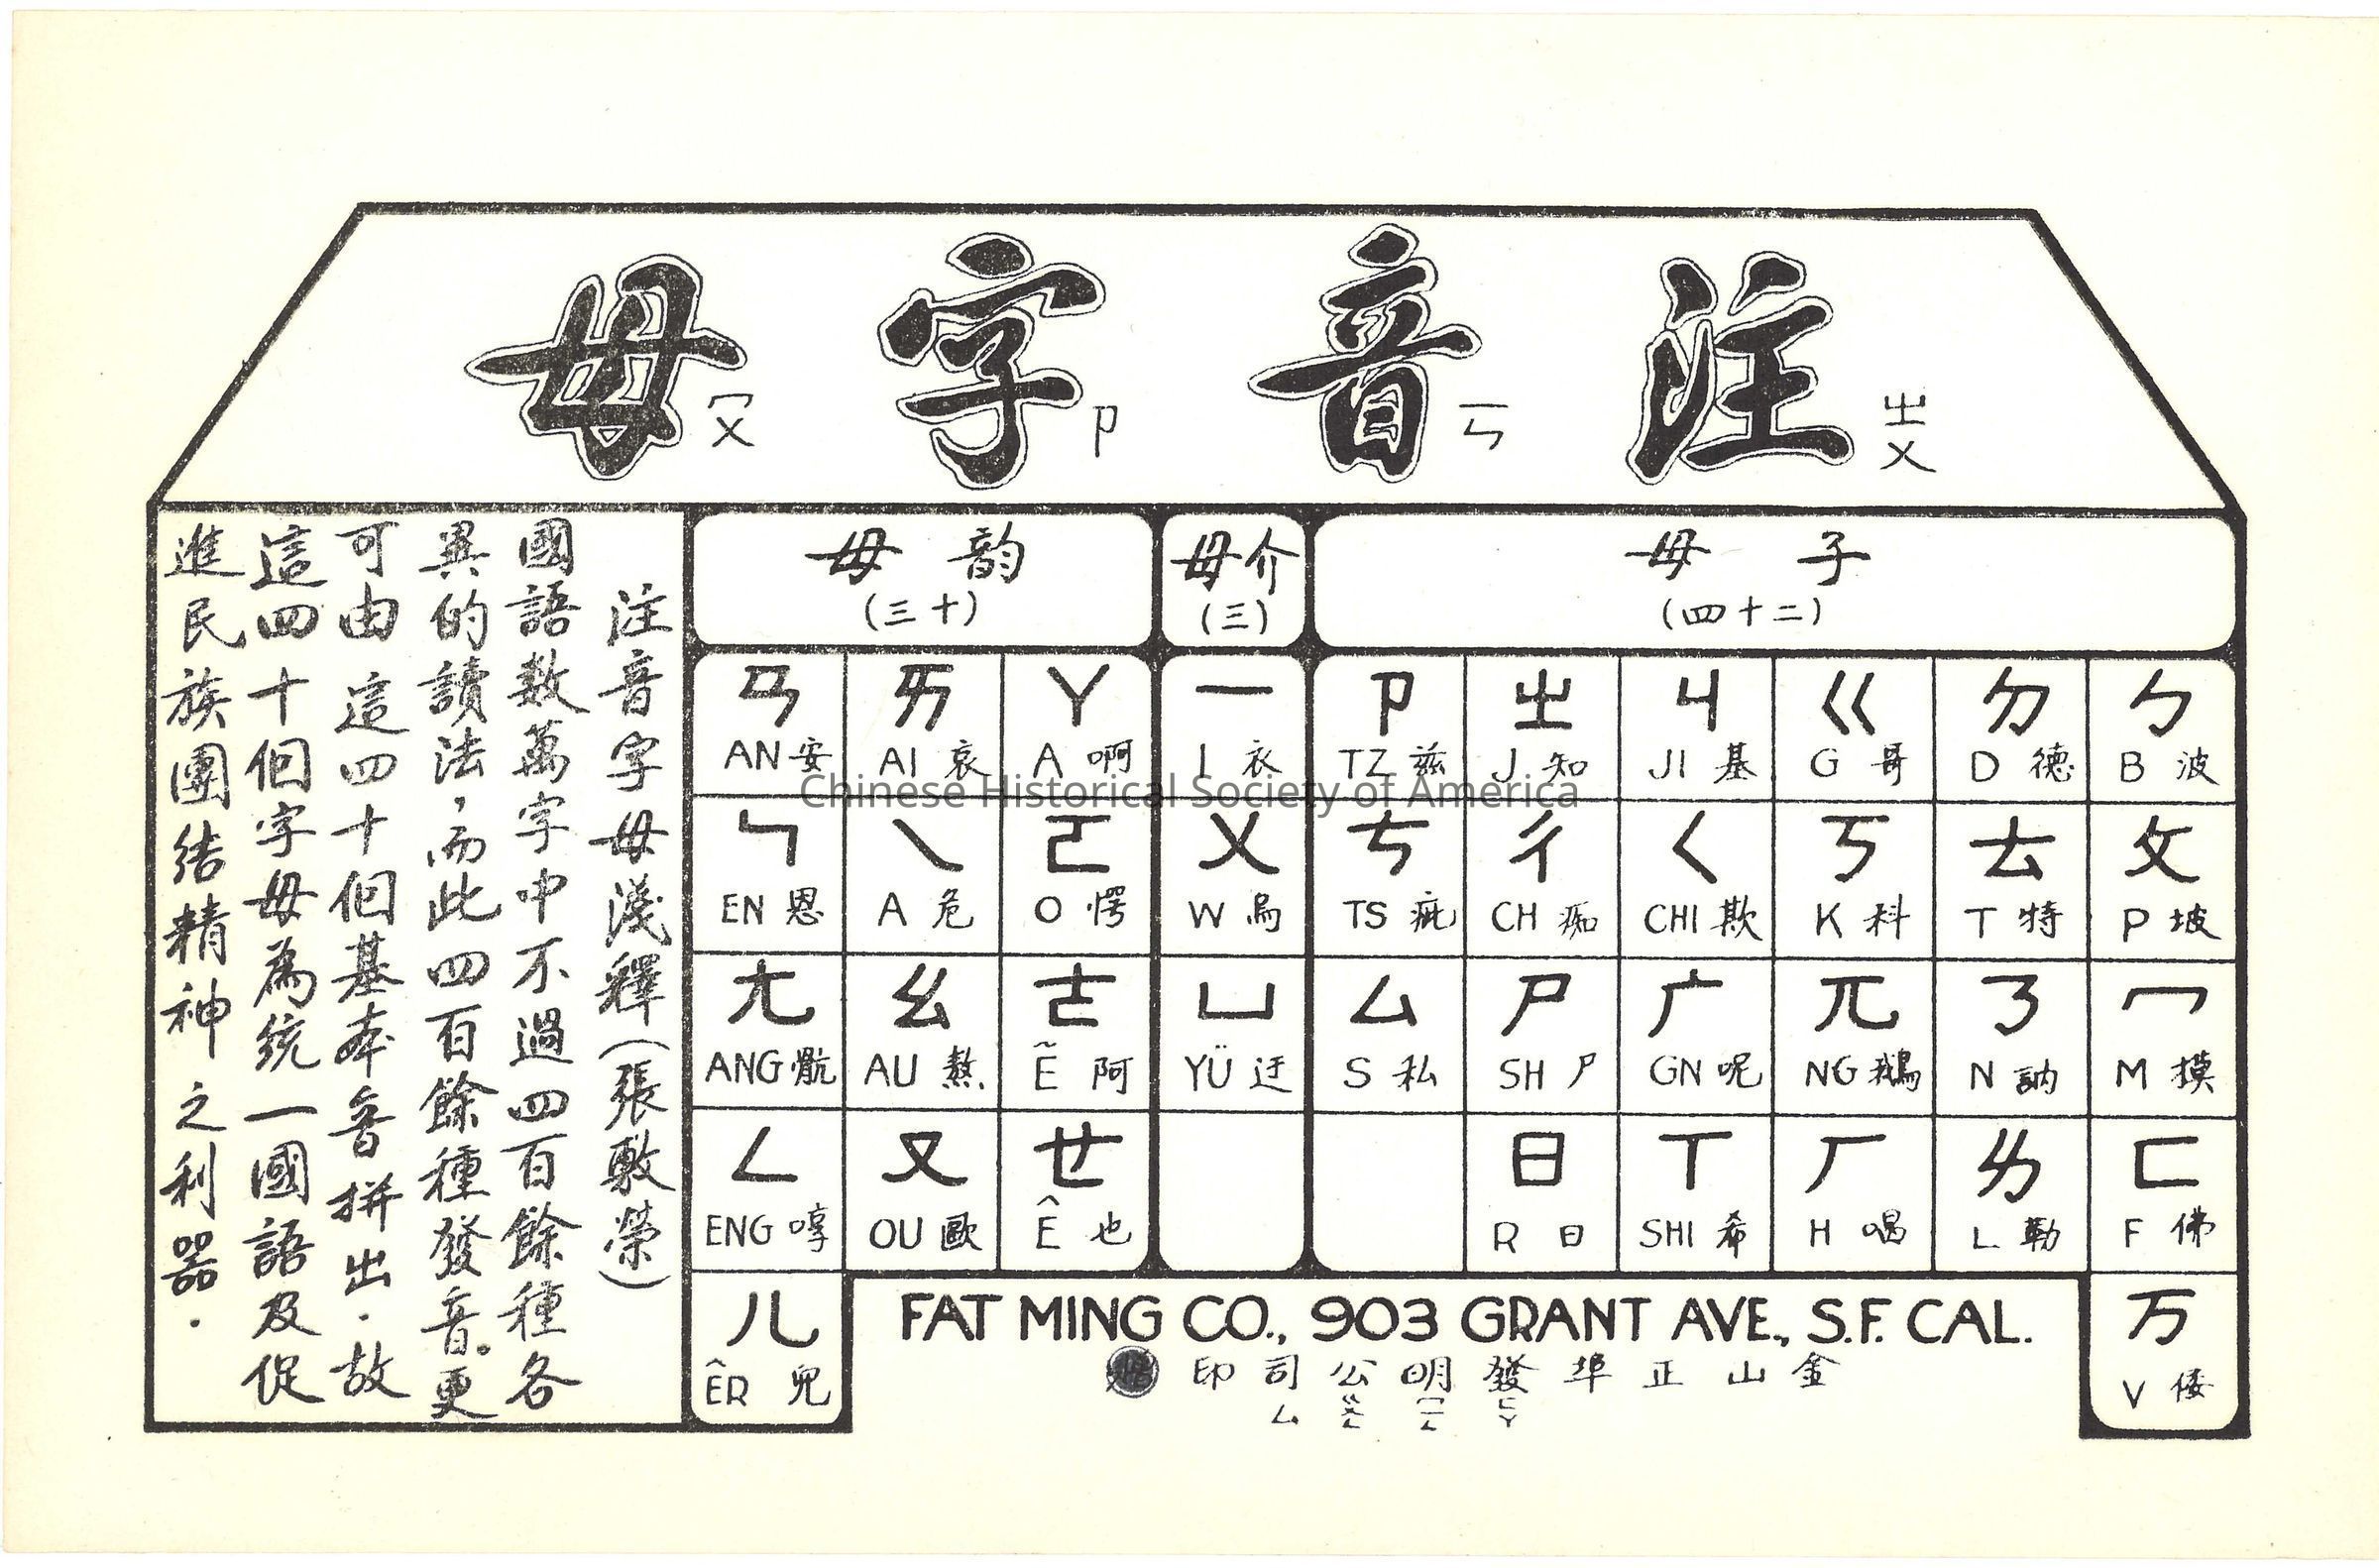 注ㄓㄨ 音ㄧㄣ 字ㄗ 母ㄇㄨ
子母 (二十四)
介母 (三)
韵母 (十三)
ㄅ B 波
ㄆ P 坡
ㄇ M 摸
ㄈ F 佛
万 V 倭
ㄉ D 德
ㄊ T 特
ㄋ N 訥
ㄌ L 勒
ㄍ G 哥
ㄎ K 科
兀 NG 鵝
ㄏ H 喝
ㄐ JI 基
ㄑ CHI 欺
广 GN 呢
ㄒ SHI 希
ㄓ J 知
ㄔ CH 痴
ㄕ SH 尸
ㄖ R 日
ㄗ TZ 兹
ㄘ TS 疵
ㄙ S 私
ㄧ I 衣
ㄨ W 烏
ㄩ YÜ 迂
ㄚ A 啊
ㄛ O 愕
ㄜ Ẽ 阿
ㄝ Ê 也
ㄞ AI 哀
ㄟ A 危
ㄠ AU 熬
ㄡ OU 歐
ㄢ AN 安
ㄣ EN 恩
ㄤ ANG 骯
ㄥ ENG 哼
ㄦ ÊR 兒
注音字母淺釋(張敷榮)
國語数萬字中不過四百餘種各
異的讀法，而此四百餘種發音。更
可由這四十個基本音拼出．故
這四十個字母為統一國語及促
進民族團結精神之利器．
FAT MING CO., 903 GRANT AVE., S.F. CAL.
金山正埠發明公司印
ㄈㄚ ㄇㄧㄥ ㄍㄨㄥ ㄙ
Chinese Historical Society of America